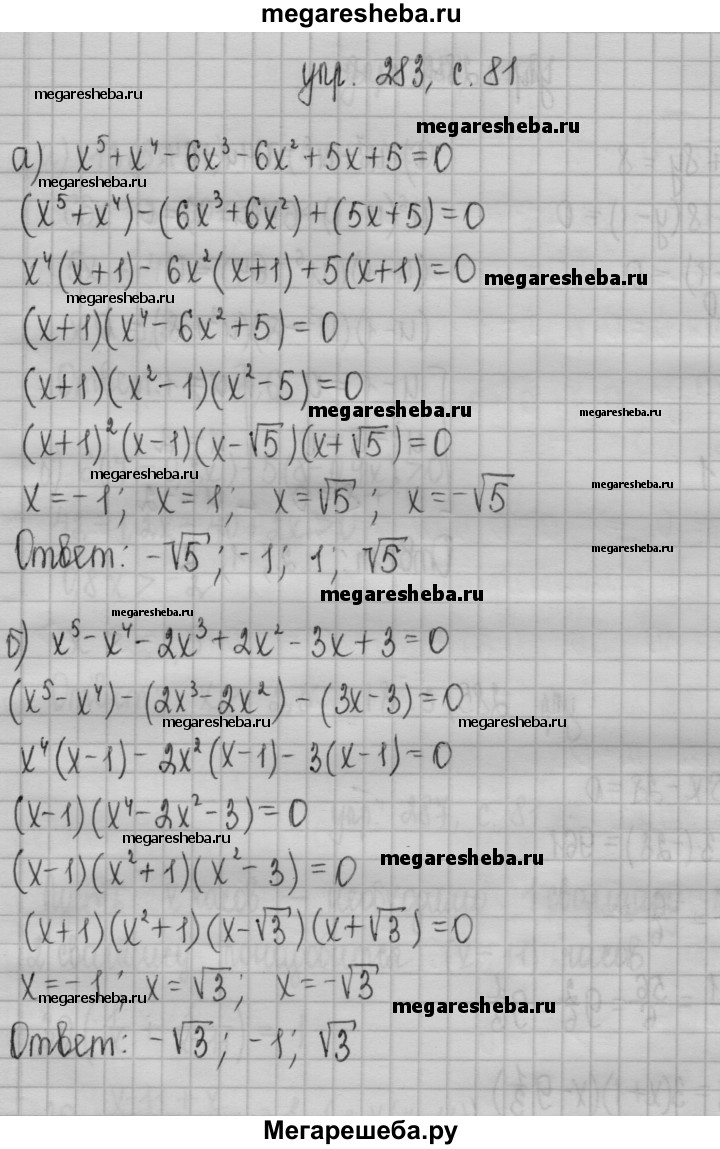 megaresheba.ru
упр. 283, с. 81
megaresheba.ru
megaresheba.ru
а) x⁵+x⁴-6x³-6x²+5x+5=0
megaresheba.ru
(x⁵+x⁴)-(6x³+6x²)+(5x+5)=0
x⁴(x+1)-6x²(x+1)+5(x+1)=0
megaresheba.ru
megaresheba.ru
(x+1)(x⁴-6x²+5)=0
(x+1)(x²-1)(x²-5)=0
megaresheba.ru
megaresheba.ru
(x+1)²(x-1)(x-√5)(x+√5)=0
megaresheba.ru
megaresheba.ru
x=-1; x=1; x=√5; x=-√5
Ответ: -√5; -1; 1; √5
megaresheba.ru
megaresheba.ru
megaresheba.ru
б) x⁵-x⁴-2x³+2x²-3x+3=0
(x⁵-x⁴)-(2x³-2x²)-(3x-3)=0
megaresheba.ru
megaresheba.ru
x⁴(x-1)-2x²(x-1)-3(x-1)=0
(x-1)(x⁴-2x²-3)=0
megaresheba.ru
megaresheba.ru
(x-1)(x²+1)(x²-3)=0
(x+1)(x²+1)(x-√3)(x+√3)=0
x=-1; x=√3; x=-√3
megaresheba.ru
megaresheba.ru
Ответ: -√3; -1; √3
Мегарешеба.ру